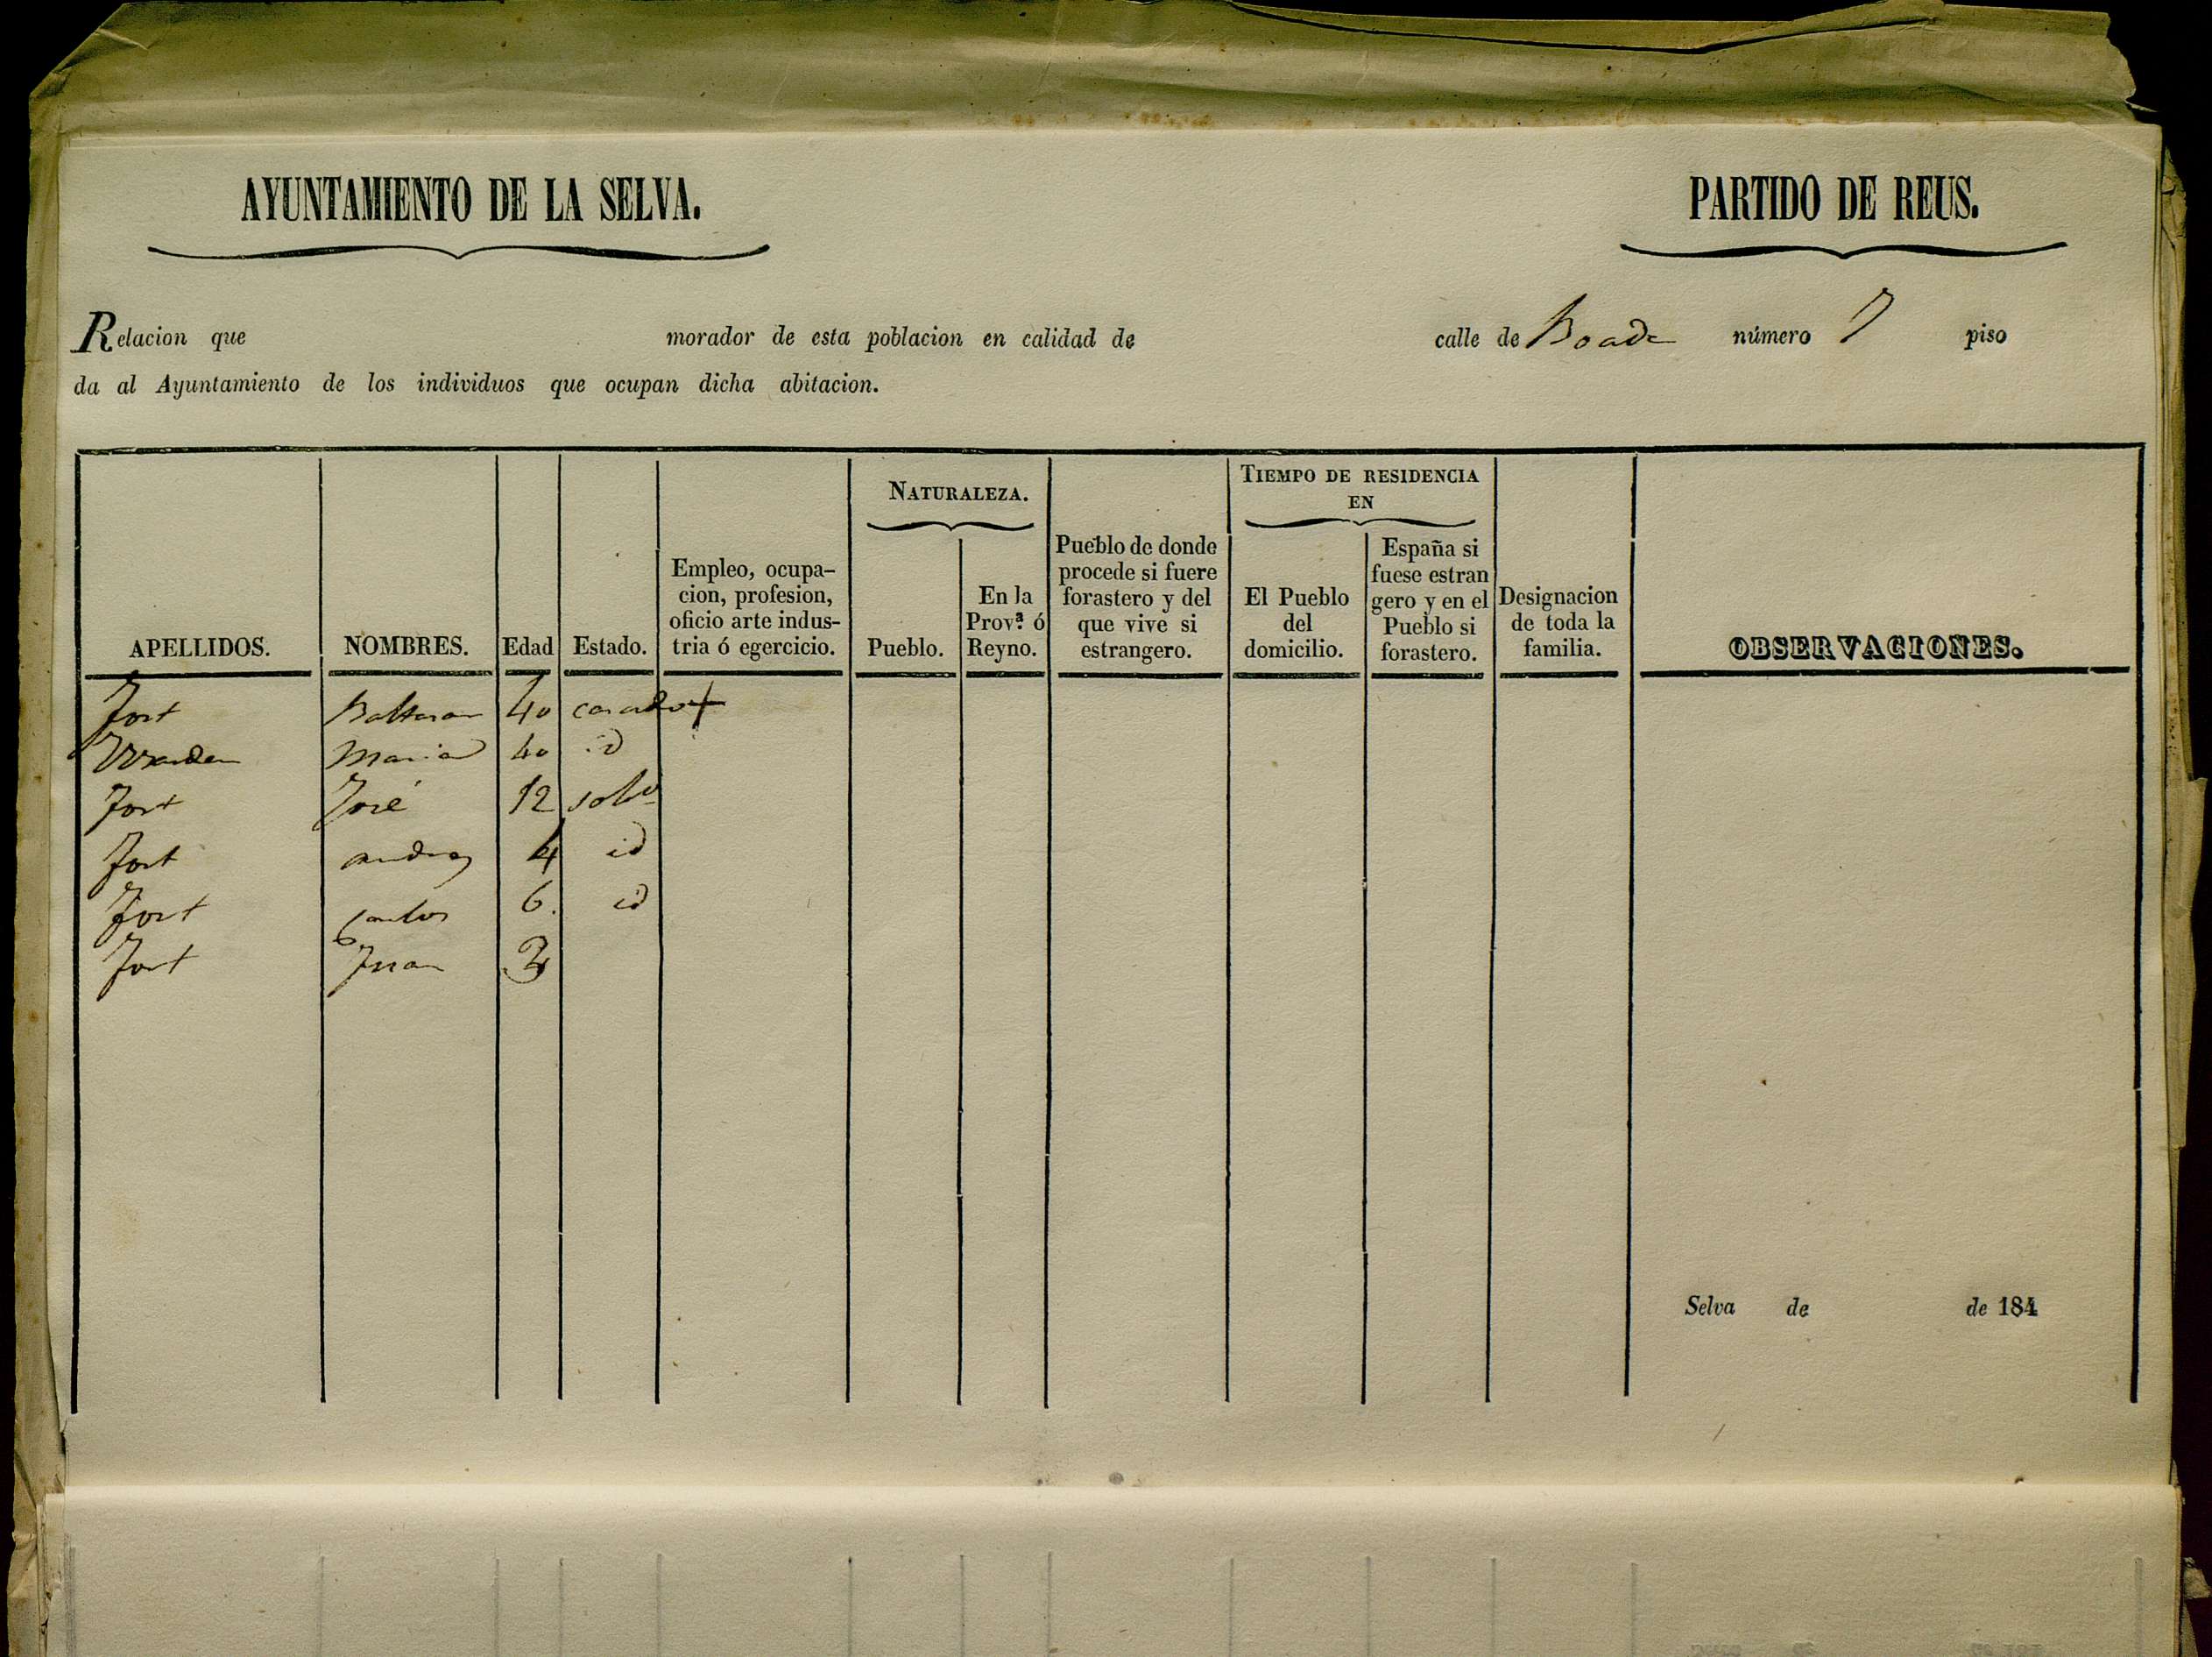 AYUNTAMIENTO DE LA SELVA. PARTIDO DE REUS.
Relacion que morador de esta poblacion en calidad de calle de Boada número 7 piso
da al Ayuntamiento de los individuos que ocupan dicha abitacion.
APELLIDOS. NOMBRES. Edad Estado. Empleo, ocupa-
cion, profesion,
oficio arte indus-
tria ó egercicio. NATURALEZA.
Pueblo. En la
Prov.ª ó
Reyno. Pueblo de donde
procede si fuere
forastero y del
que vive si
estrangero. TIEMPO DE RESIDENCIA
EN
El Pueblo
del
domicilio. España si
fuese estran
gero y en el
Pueblo si
forastero. Designacion
de toda la
familia. OBSERVACIONES.
Fort Baltasar 40 casado +
Maria 40 id
Fort José 12 solto
Fort Andres 4 id
Fort Carlos 6. id
Fort Juan 3
Selva de de 184